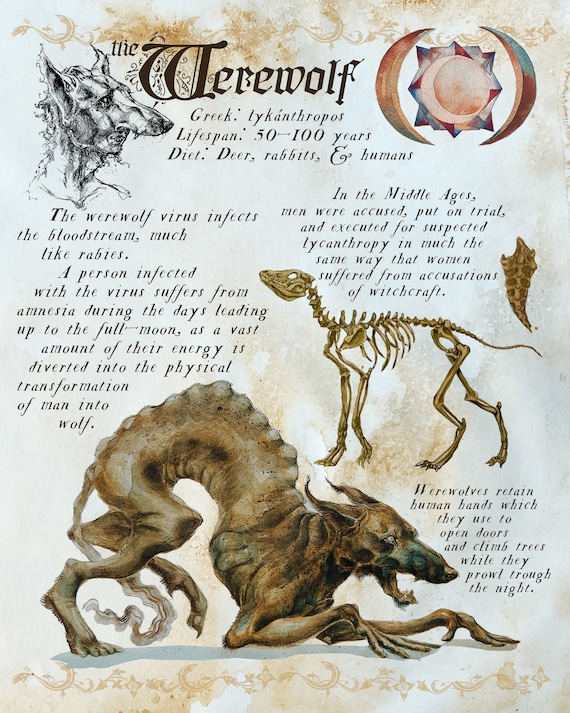 the Werewolf
Greek: lykánthropos
Lifespan: 50-100 years
Diet: Deer, rabbits, & humans
The werewolf virus infects
the bloodstream, much
like rabies.
A person infected
with the virus suffers from
amnesia during the days leading
up to the full-moon, as a vast
amount of their energy is
diverted into the physical
transformation
of man into
wolf.
In the Middle Ages,
men were accused, put on trial,
and executed for suspected
lycanthropy in much the
same way that women
suffered from accusations
of witchcraft.
Werewolves retain
human hands which
they use to
open doors
and climb trees
while they
prowl trough
the night.